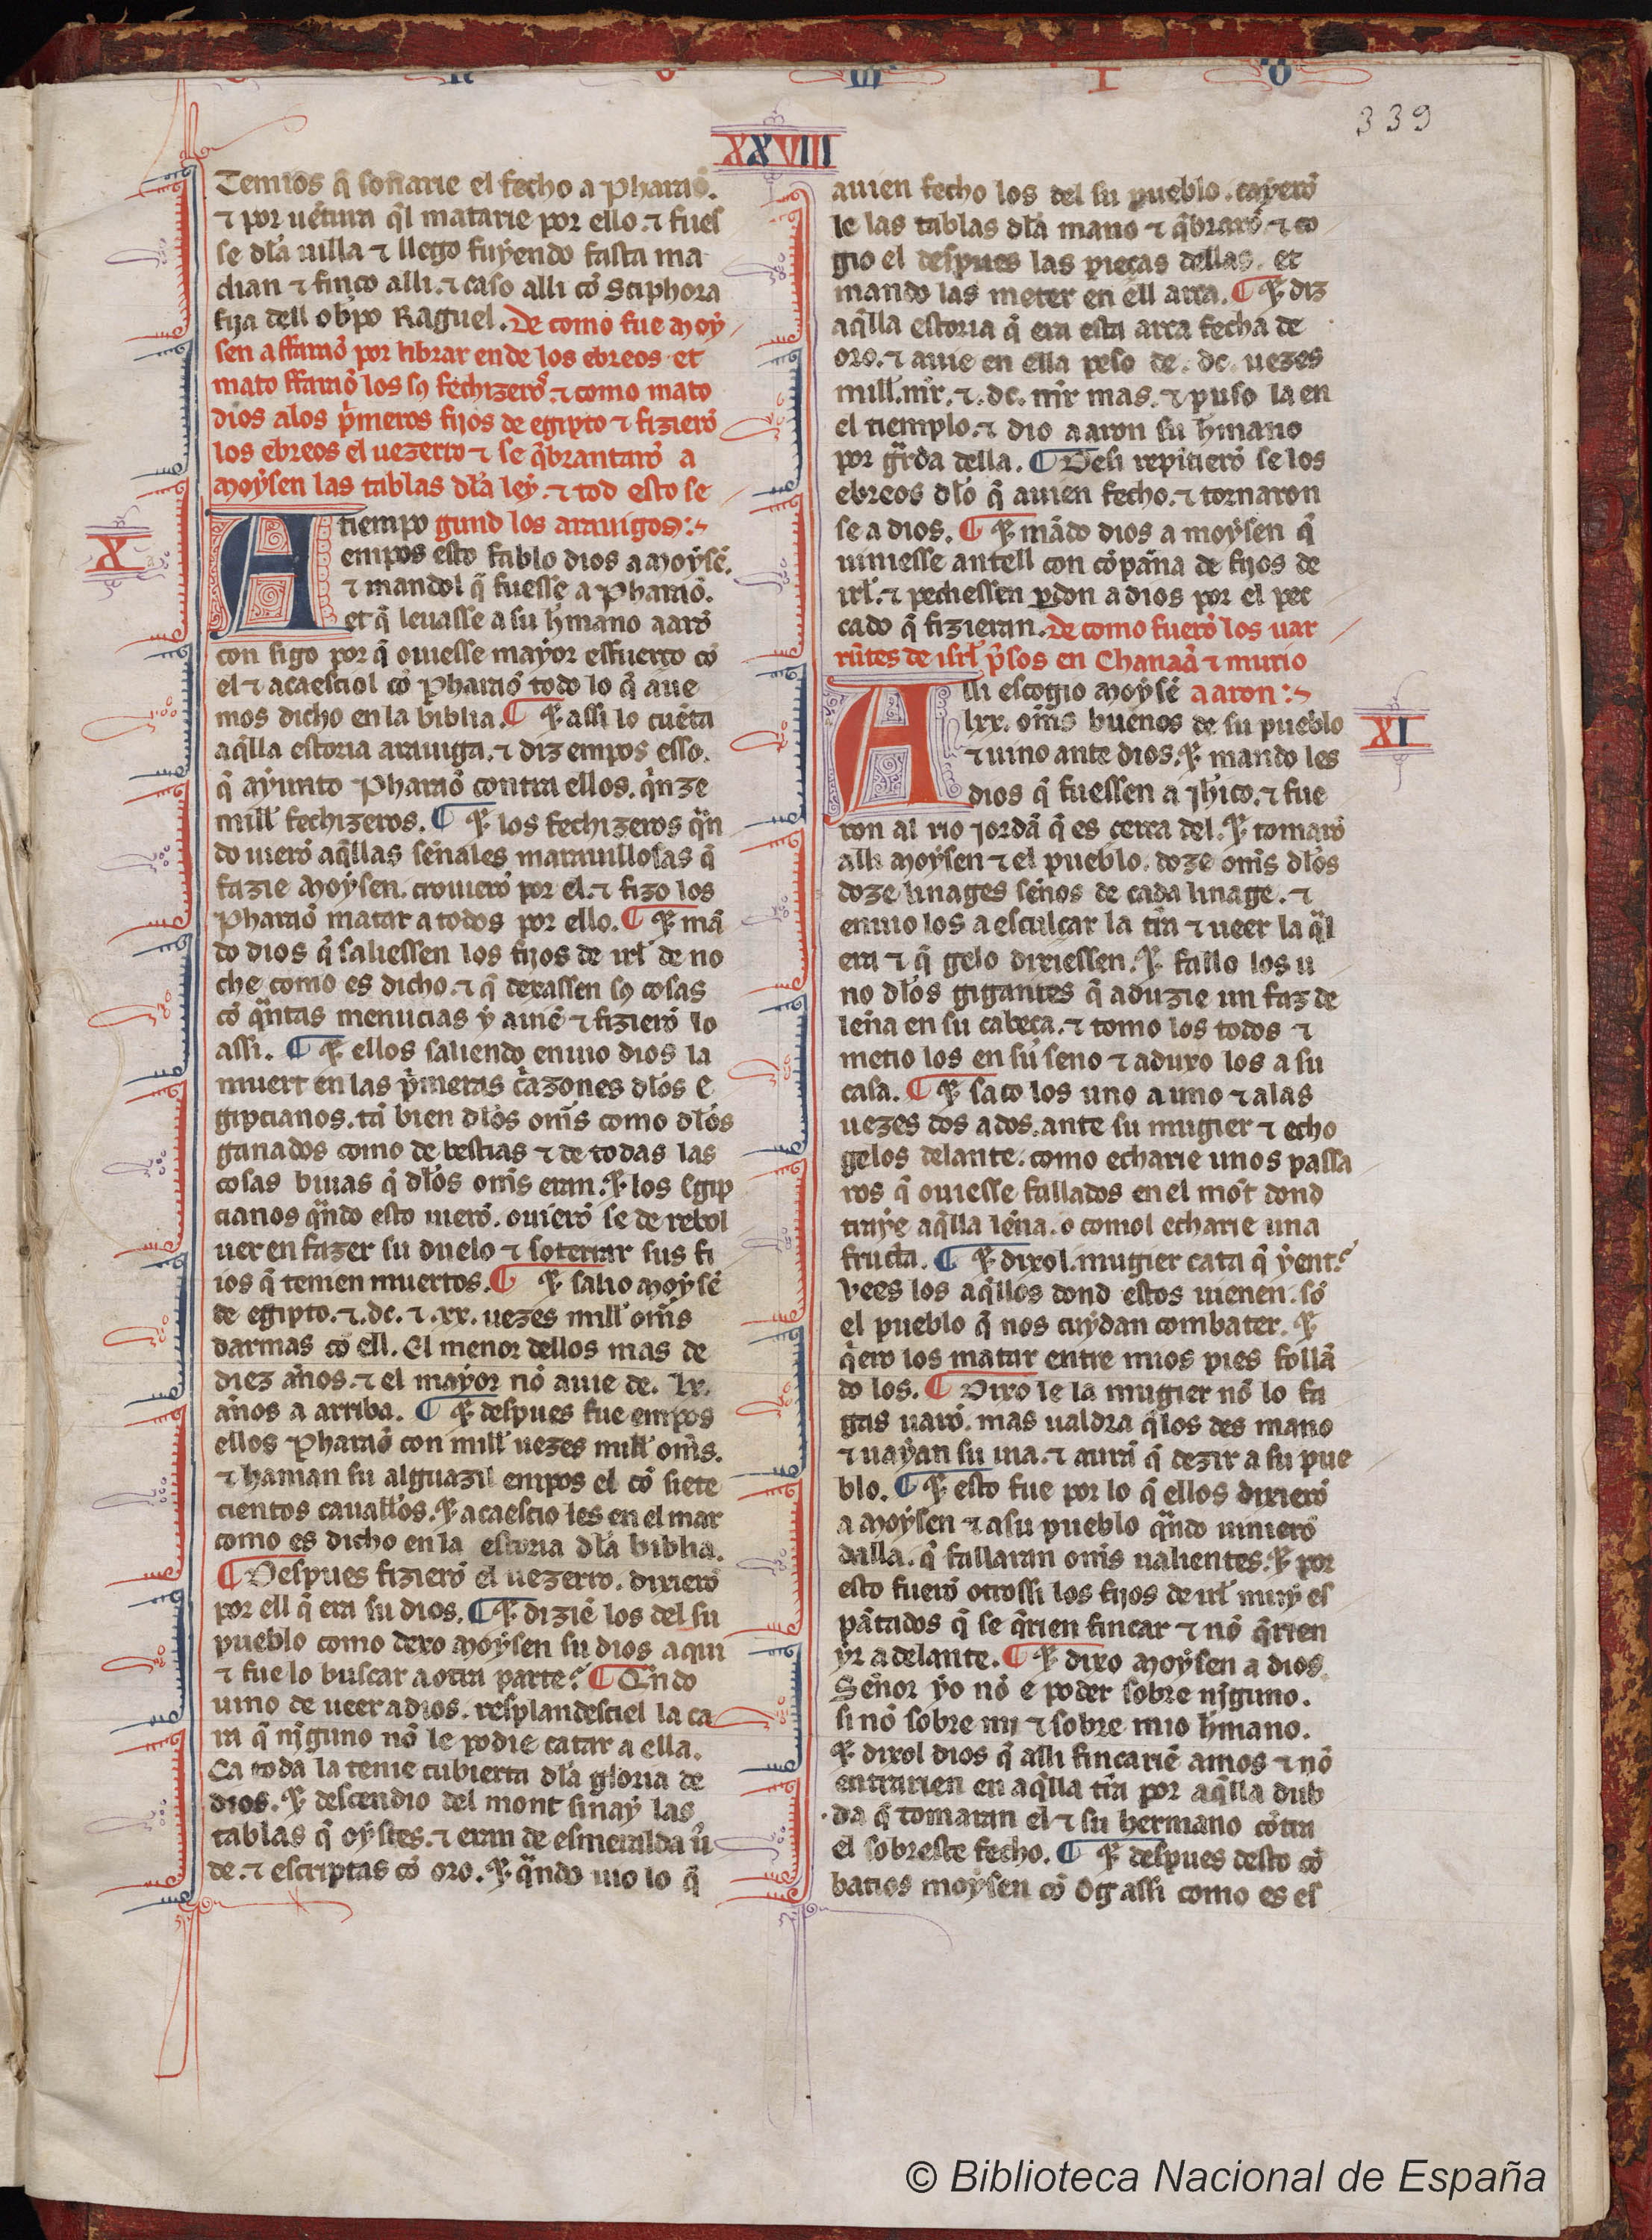 339
XXVIII
Temios q̃ sonarie el fecho a Pharaõ.
⁊ por uẽtura q̃l matarie por ello. ⁊ fues
se dl̃a uilla ⁊ llego fuyendo fasta ma
dian ⁊ finco alli. ⁊ caso alli cõ Sciphora
fija dell obp̃o Raguel. De como fue moy
sen a ffaraõ por librar ende los ebreos et
mato ffaraõ los sꝯ fechizerõs ⁊ como mato
dios alos p̃meros fijos de egipto ⁊ fizierõ
los ebreos el uezerro ⁊ se q̃brantarõ a
moysen las tablas dl̃a ley. ⁊ tod esto se
X
A
tiempo gund los arauigos:~
empos esto fablo dios a moysẽ.
⁊ mandol q̃ fuesse a Pharaõ.
et q̃ leuasse a su hm̃ano aarõ
con sigo por q̃ ouiesse mayor esfuerço cõ
el ⁊ acaesciol cõ Pharaõ todo lo q̃ aue
mos dicho en la biblia. ¶ ⁊ assi lo cuẽta
aq̃lla estoria arauiga. ⁊ diz empos esso.
q̃ ayunto Pharaõ contra ellos. q̃nze
mill fechizeros. ¶ ⁊ los fechizeros q̃n
do uierõ aq̃llas sen̄ales marauillosas q̃
fazie moysen. crouierõ por el. ⁊ fizo los
Pharaõ matar a todos por ello. ¶ ⁊ mã
do dios q̃ saliessen los fijos de irl̃ de no
che como es dicho. ⁊ q̃ dexassen sꝯ cosas
cõ q̃ntas menucias y auiẽ ⁊ fizierõ lo
assi. ¶ ⁊ ellos saliendo enuio dios la
muert en las p̃meras c̃azones dl̃os e
gipcianos. tã bien dl̃os om̃s como dl̃os
ganados como de bestias ⁊ de todas las
cosas biuas q̃ dl̃os om̃s eran. ⁊ los Egip
cianos q̃ndo esto uierõ. ouierõ se de rebol
uer en fazer su duelo ⁊ soterrar sus fi
ios q̃ tenien muertos. ¶ ⁊ salio moysẽ
de egipto. ⁊. dc. ⁊. xx. uezes mill om̃s
darmas cõ ell. El menor dellos mas de
diez an̄os. ⁊ el mayor nõ auie de. lx.
an̄os a arriba. ¶ ⁊ despues fue empos
ellos Pharaõ con mill uezes mill om̃s.
⁊ haman su alguazil empos el cõ siete
cientos cauallos. ⁊ acaescio les en el mar
como es dicho en la estoria dl̃a biblia.
¶ Despues fizierõ el uezerro. dixierõ
por ell q̃ era su dios. ¶ ⁊ diziẽ los del su
pueblo como dexo moysen su dios aqui
⁊ fue lo buscar a otra parte? ¶ Q̃ndo
uino de ueer a dios. resplandesciel la ca
ra q̃ nĩguno nõ le podie catar a ella.
Ca toda la tenie cubierta dl̃a gloria de
dios. ⁊ descendio del mont sinay las
tablas q̃ oystes. ⁊ eran de esmeralda ũ
de. ⁊ escriptas cõ oro. ⁊ q̃ndo uio lo q̃
auien fecho los del su pueblo. cayerõ
le las tablas dl̃a mano ⁊ q̃brarõ. ⁊ co
gio el despues las pieças dellas. et
mando las meter en ell arca. ¶ ⁊ diz
aq̃lla estoria q̃ era esta arca fecha de
oro. ⁊ auie en ella peso de. dc. uezes
mill. mr̃. ⁊. dc. mr̃ mas. ⁊ puso la en
el tiemplo. ⁊ dio a aron su hm̃ano
por gr̃da della. ¶ Desi repintierõ se los
ebreos dl̃o q̃ auien fecho. ⁊ tornaron
se a dios. ¶ ⁊ mãdo dios a moysen q̃
uiniesse antell con cõpan̄a de fijos de
irl̃. ⁊ pechessen ꝑdon a dios por el pec
cado q̃ fizieran. De como fuerõ los uar
rũtes de isrl̃ p̃sos en Chanaã ⁊ murio
XI
A
lli escogio moysẽ aaron:~
lxx. om̃s buenos de su pueblo
⁊ uino ante dios. ⁊ mando les
dios q̃ fuessen a jh̃ico. ⁊ fue
ron al rio jordã q̃ es cerca del. ⁊ tomarõ
alli moysen ⁊ el pueblo. doze om̃s dl̃os
doze linages sen̄os de cada linage. ⁊
enuio los a esculcar la tr̃a ⁊ ueer la q̃l
era ⁊ q̃ gelo dixiessen. ⁊ fallo los u
no dl̃os gigantes q̃ aduzie un faz de
len̄a en su cabeça. ⁊ tomo los todos ⁊
metio los en su seno ⁊ aduxo los a su
casa. ¶ ⁊ saco los uno a uno ⁊ alas
uezes dos a dos. ante su mugier ⁊ echo
gelos delante. como echarie unos passa
ros q̃ ouiesse fallados en el mõt dond
traye aq̃lla len̄a. o comol echarie una
fructa. ¶ ⁊ dixol. mugier cata q̃ yent?
Vees los aq̃llos dond estos uienen. sõ
el pueblo q̃ nos cuydan combater. ⁊
q̃ero los matar entre mios pies follã
do los. ¶ Dixo le la mugier nõ lo fa
gas uarõ. mas ualdra q̃ los des mano
⁊ uayan su uia. ⁊ aurã q̃ dezir a su pue
blo. ¶ ⁊ esto fue por lo q̃ ellos dixierõ
a moysen ⁊ a su pueblo q̃ndo uinierõ
dalla. q̃ fallaran om̃s ualientes. ⁊ por
esto fuerõ otrossi los fijos de irl̃ muy es
pãtados q̃ se q̃rien fincar ⁊ nõ q̃rien
yr adelante. ¶ ⁊ dixo moysen a dios
Sen̄or yo nõ e poder sobre nĩguno.
si nõ sobre mi ⁊ sobre mio hm̃ano.
⁊ dixol dios q̃ alli fincariẽ amos ⁊ nõ
entrarien en aq̃lla tr̃a por aq̃lla dub
da q̃ tomaran el ⁊ su hermano cõtra
el sobreste fecho. ¶ ⁊ despues desto cõ
batios moysen cõ Og assi como es es
© Biblioteca Nacional de España